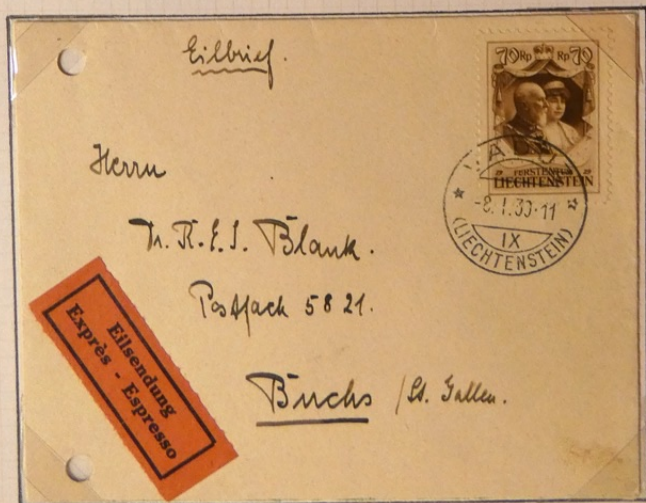 Eilbrief.
70 Rp Rp 70
FÜRSTENTUM
LIECHTENSTEIN
VADUZ
-8.I.30-11
IX
(LIECHTENSTEIN)
Herrn
Dr. R.E.S. Blank.
Postfach 5821.
Buchs /St. Gallen.
Eilsendung
Exprès - Espresso